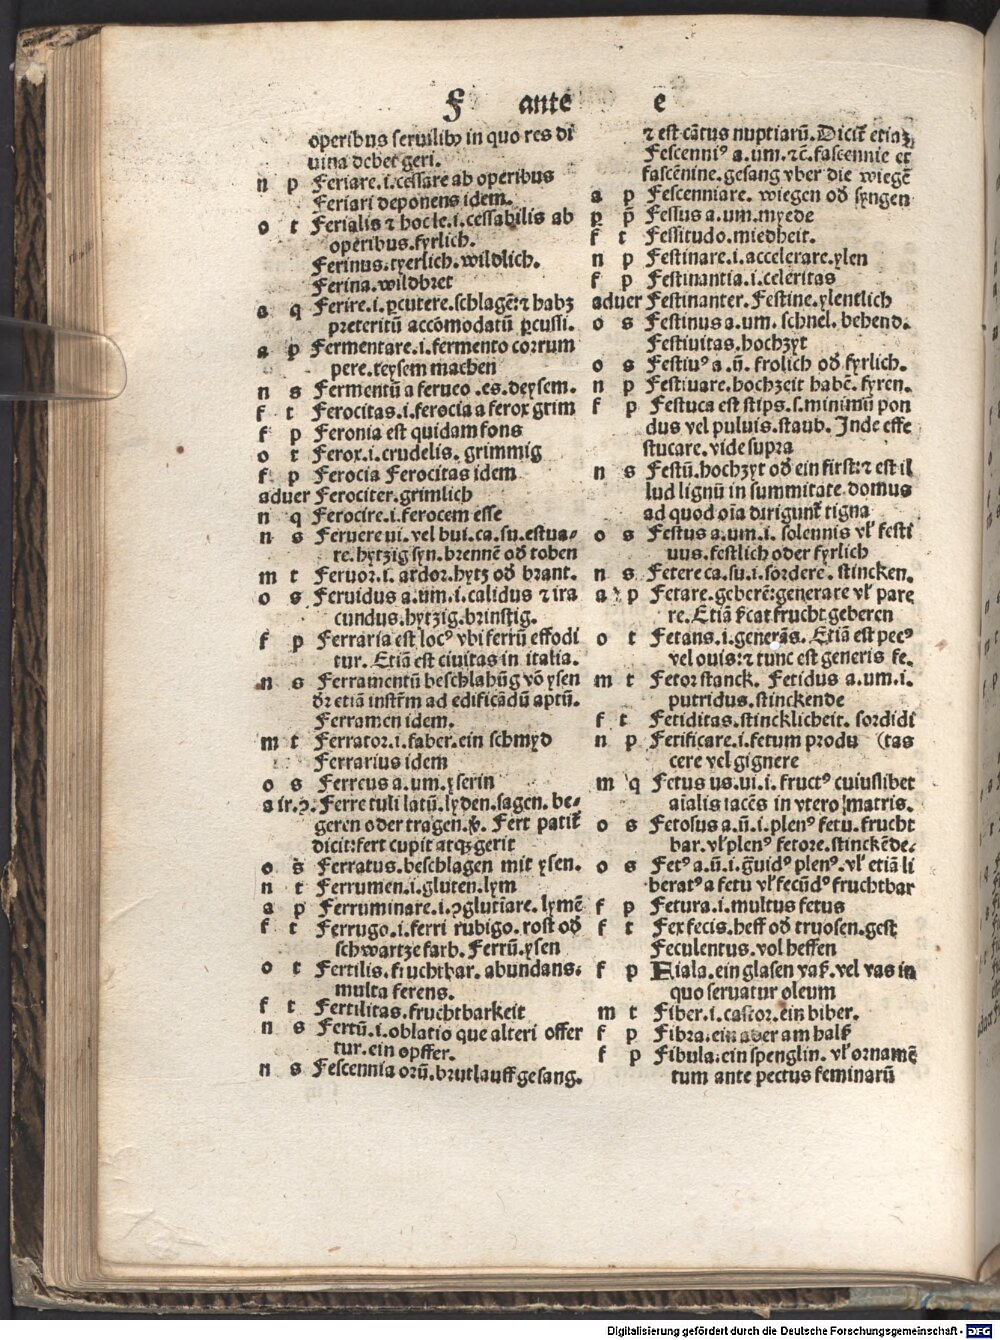 F ante e
operibus seruilibꝰ in quo res di
uina debet geri.
n p Feriare.i.cessare ab operibus
Feriari deponens idem.
o t Ferialis ⁊ hoc le.i.cessabilis ab
operibus.fyrlich.
Ferinus.tyerlich.wildlich.
Ferina.wildbret
a q Ferire.i.ꝑcutere.schlagẽ:⁊ habꝫ
preteritũ accõmodatũ ꝑcussi.
a p Fermentare.i.fermento corrum
pere.teysem machen
n s Fermentũ a ferueo.es.deysem.
f t Ferocitas.i.ferocia a ferox grim
f p Feronia est quidam fons
o t Ferox.i.crudelis.grimmig
f p Ferocia Ferocitas idem
aduer Ferociter.grimlich
n q Ferocire.i.ferocem esse
n s Feruere ui.vel bui.ca.su.estua⸗
re.hytzig syn.brennẽ od̕ toben
m t Feruor.i.ardor.hytz od̕ brant.
o s Feruidus a.um.i.calidus ⁊ ira
cundus.hytzig.brinstig.
f p Ferraria est locꝰ vbi ferrũ effodi
tur.Etiã est ciuitas in italia.
n s Ferramentũ beschlahũg võ ysen
d̕r etiã instr̃m ad edificãdũ aptũ.
Ferramen idem.
m t Ferrator.i.faber.ein schmyd
Ferrarius idem
o s Ferreus a.um.yserin
a ir.ꝯ. Ferre tuli latũ.lyden.sagen.be⸗
geren oder tragen.ꝟ. Fert patit᷑
dicit:fert cupit atqꝫ gerit
o s Ferratus.beschlagen mit ysen.
n t Ferrumen.i.gluten.lym
a p Ferruminare.i.ꝯglutiare.lymẽ
f t Ferrugo.i.ferri rubigo.rost od̕
schwartze farb. Ferrũ.ysen
o t Fertilis.fruchtbar.abundans.
multa ferens.
f t Fertilitas.fruchtbarkeit
n s Fertũ.i.oblatio que alteri offer
tur.ein opffer.
n s Fescennia orũ.brutlauff gesang.
⁊ est cãtus nuptiarũ.Dicit᷑ etiaꝫ
Fescenniꝰ a.um.⁊c.fascennie et
fascẽnine.gesang vber die wiegẽ
a p Fescenniare. wiegen od̕ syngen
ꝑ p̃ Fessus a.um.myede
f t Fessitudo.miedheit.
n p Festinare.i.accelerare.ylen
f p Festinantia.i.celeritas
aduer Festinanter.Festine.ylentlich
o s Festinus a.um. schnel. behend.
Festiuitas.hochzyt
o s Festiuꝰ a.ũ. frolich od̕ fyrlich.
n p Festiuare.hochzeit habẽ.fyren.
f p Festuca est stips.s.minimũ pon
dus vel puluis.staub. Inde effe
stucare.vide supra
n s Festũ.hochzyt od̕ ein first:⁊ est il
lud lignũ in summitate domus
ad quod oĩa dirigunt᷑ tigna
o s Festus a.um.i. solennis vl̕ festi
uus.festlich oder fyrlich
n s Fetere ca.su.i.sordere. stincken.
a p Fetare.geberẽ:generare vl̕ pare
re.Etiã f̕cat frucht geberen
o t Fetans.i.generãs. Etiã est pecꝰ
vel ouis:⁊ tunc est generis fe.
m t Fetor stanck. Fetidus a.um.i.
putridus.stinckende
f t Fetiditas.stincklicheit. sordidi
n p Fetificare.i.fetum produ (tas
cere vel gignere
m q Fetus us.ui.i.fructꝰ cuiuslibet
aĩalis iacẽs in vtero matris.
o s Fetosus a.ũ.i.plenꝰ fetu.frucht
bar.vl̕ plenꝰ fetore.stinckẽde.
o s Fetꝰ a.ũ.i.g̃uidꝰ plenꝰ.vl̕ etiã li
beratꝰ a fetu vl̕ fecũdꝰ fruchtbar
f p Fetura.i.multus fetus
f t Fex fecis.heff od̕ truosen.gest
Feculentus.vol heffen
f p Fiala.ein glasen vaß.vel vas in
quo seruatur oleum
m t Fiber.i.castor.ein biber.
f p Fibra.ein ader am halß
f p Fibula.ein spenglin. vl̕ ornamẽ
tum ante pectus feminarũ
Digitalisierung gefördert durch die Deutsche Forschungsgemeinschaft - DFG